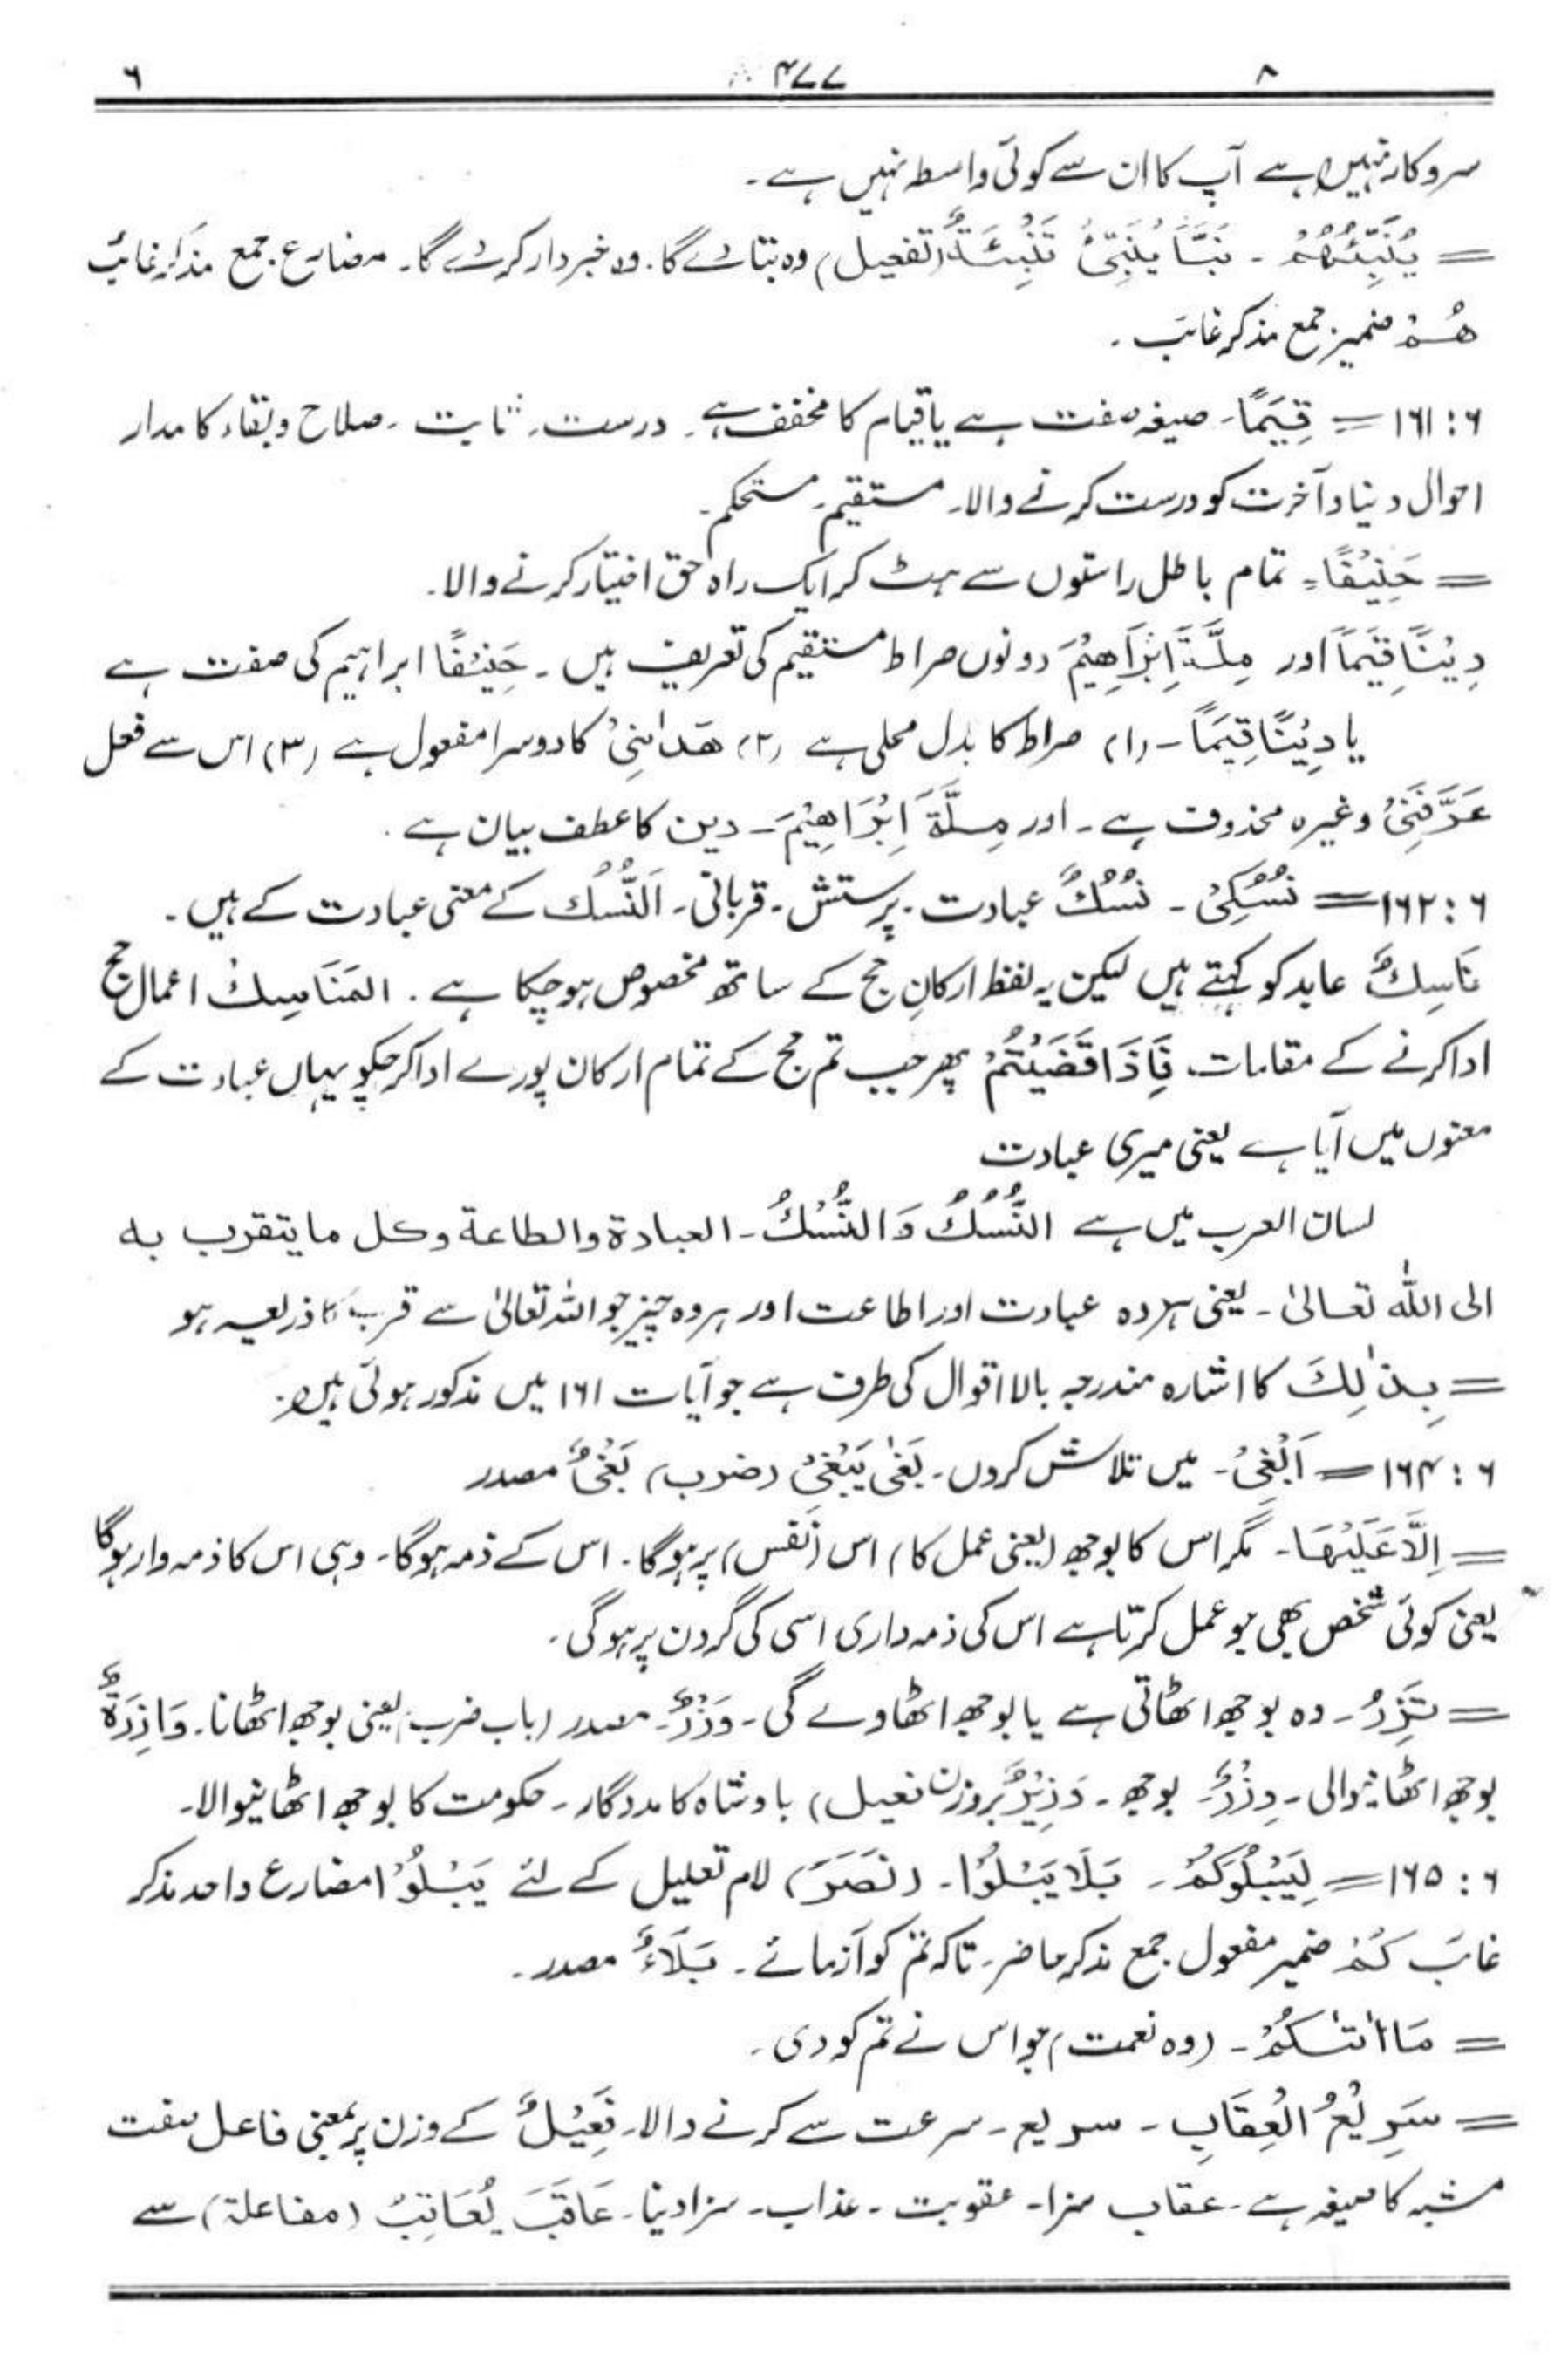 ۸ ۴۷۷ ۶
سروکار نہیں ہے آپ کا ان سے کوئی واسطہ نہیں ہے۔
= یُنَبِّئُھُمْ ۔ نَبَّأَ یُنَبِّیُٔ تَنْبِئَۃٌ (تفعیل) وہ بتائے گا۔ وہ خبردار کرے گا۔ مضارع جمع مذکر غائب
ھُمْ ضمیر جمع مذکر غائب ۔
۶: ۱۶۱ = قِیَمًا۔ صیغہ صفت ہے یا قیام کا مخفف ہے۔ درست۔ ثابت ۔ صلاح و بقاء کا مدار
احوال دنیا و آخرت کو درست کرنے والا۔ مستقیم۔ مستحکم۔
= حَنِیْفًا۔ تمام باطل راستوں سے ہٹ کر ایک راہ حق اختیار کرنے والا۔
دِیْنًا قِیَمًا اور مِلَّۃَ اِبْرَاھِیْمَ دونوں صراط مستقیم کی تعریف ہیں ۔ حَنِیْفًا ابراہیم کی صفت ہے
یا دِیْنًا قِیَمًا ۔ (۱) صراط کا بدل محلی ہے (۲) ھَدٰىنِیْ کا دوسرا مفعول ہے (۳) اس سے فعل
عَرَّفَنِیْ وغیرہ محذوف ہے ۔ اور مِلَّۃَ اِبْرَاھِیْمَ ۔ دین کا عطف بیان ہے ۔
۶: ۱۶۲ = نُسُکِیْ ۔ نُسُكٌ عبادت ۔ پرستش ۔ قربانی ۔ اَلنُّسُك کے معنی عبادت کے ہیں ۔
نَاسِكٌ عابد کو کہتے ہیں لیکن یہ لفظ ارکانِ حج کے ساتھ مخصوص ہو چکا ہے ۔ المَنَاسِكُ اعمال حج
ادا کرنے کے مقامات۔ فَاِذَا قَضَیْتُمْ پھر جب تم حج کے تمام ارکان پورے ادا کر چکو یہاں عبادت کے
معنوں میں آیا ہے یعنی میری عبادت
لسان العرب میں ہے النُّسُكُ وَ النُّسْكُ۔ العبادة والطاعة وكل ما يتقرب به
الی اللّٰہ تعالیٰ ۔ یعنی ہر وہ عبادت اور اطاعت اور ہر وہ چیز جو اللہ تعالیٰ سے قرب کا ذریعہ ہو
= بِذٰلِكَ کا اشارہ مندرجہ بالا اقوال کی طرف ہے جو آیات ۱۶۱ میں مذکور ہوئی ہیں۔
۶: ۱۶۴ = اَبْغِیْ۔ میں تلاش کروں۔ بَغٰی یَبْغِیْ (ضرب) بَغْیٌ مصدر
= اِلَّا عَلَیْھَا۔ مگر اس کا بوجھ (یعنی عمل کا) اس (نفس) پر ہو گا۔ اس کے ذمہ ہوگا۔ وہی اس کا ذمہ وار ہوگا
یعنی کوئی شخص بھی جو عمل کرتا ہے اس کی ذمہ داری اسی کی گردن پر ہوگی۔
= تَزِرُ۔ وہ بوجھ اٹھاتی ہے یا بوجھ اٹھاوے گی۔ وَزْرٌ۔ مصدر (باب ضرب) یعنی بوجھ اٹھانا۔ وَازِرَۃٌ
بوجھ اٹھانیوالی ۔ وِزْرٌ۔ بوجھ ۔ وَزِیْرٌ بروزن فعیل) بادشاہ کا مددگار ۔ حکومت کا بوجھ اٹھانیوالا۔
۶: ۱۶۵ = لِیَبْلُوَکُمْ ۔ بَلَا یَبْلُوْا۔ (نَصَرَ) لام تعلیل کے لئے یَبْلُوْا مضارع واحد مذکر
غائب کُمْ ضمیر مفعول جمع مذکر حاضر۔ تاکہ تم کو آزمائے ۔ بَلَاءٌ مصدر۔
= مَا اٰتٰىکُمْ ۔ (وہ نعمت) جو اس نے تم کو دی ۔
= سَرِیْعُ الْعِقَابِ ۔ سریع ۔ سرعت سے کرنے والا۔ فَعِیْلٌ کے وزن پر بمعنی فاعل صفت
مشبہ کا صیغہ ہے ۔ عقاب سزا۔ عقوبت ۔ عذاب ۔ سزا دینا۔ عَاقَبَ یُعَاقِبُ (مفاعلۃ) سے